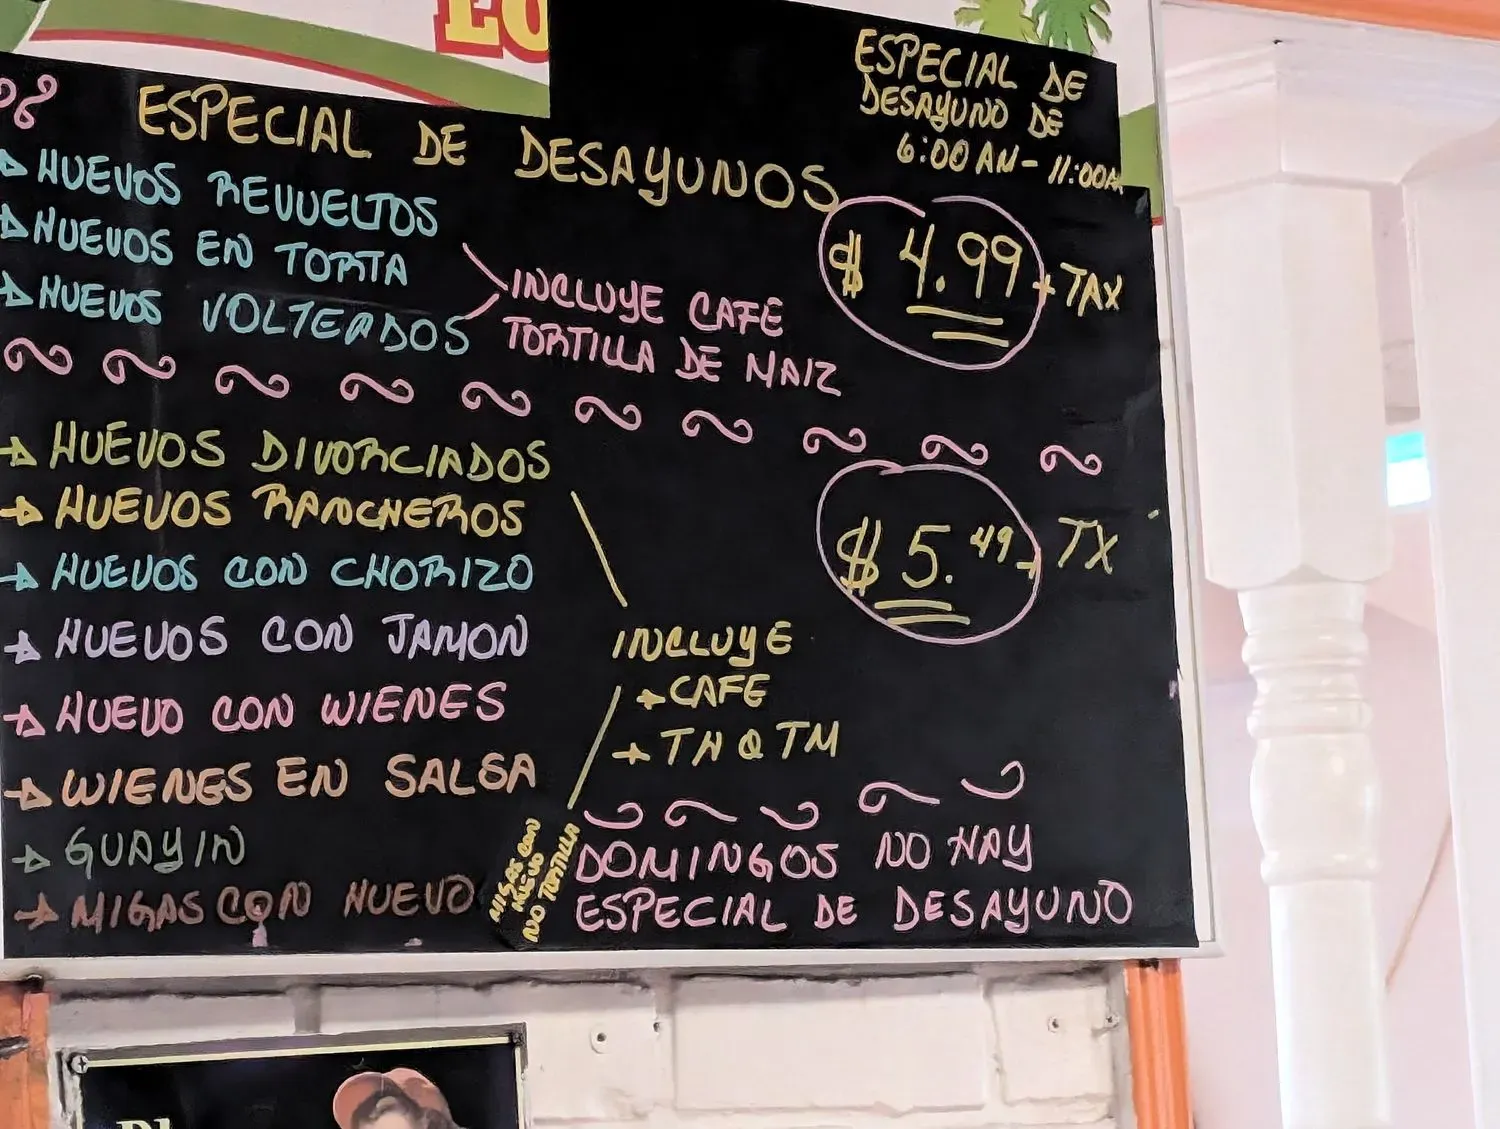 ESPECIAL DE
DESAYUNO DE
6:00 AM - 11:00AM
ESPECIAL DE DESAYUNOS
HUEVOS REVUELTOS
HUEVOS EN TORTA
HUEVOS VOLTEADOS
INCLUYE CAFE
TORTILLA DE MAIZ
$ 4.99 + TAX
HUEVOS DIVORCIADOS
HUEVOS RANCHEROS
HUEVOS CON CHORIZO
HUEVOS CON JAMON
HUEVO CON WIENES
WIENES EN SALSA
GUAYIN
MIGAS CON HUEVO
$ 5.49 + TX
INCLUYE
+ CAFE
+ TH O TM
MIGAS CON
HUEVO
NO TORTILLA
DOMINGOS NO HAY
ESPECIAL DE DESAYUNO